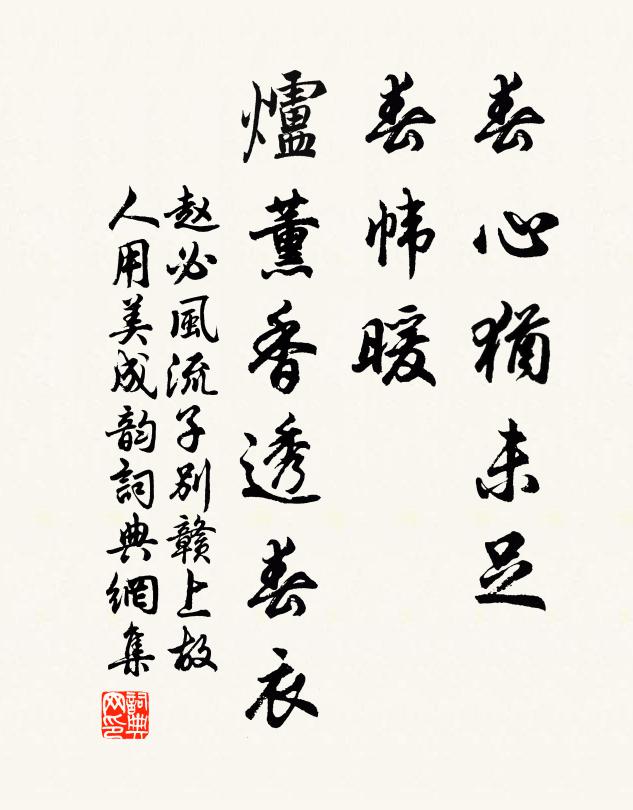 春心猶未足
春幃暖
爐薰香透春衣
趙必風流子別贛上故
人用美成韵詞典網集
詞典网印